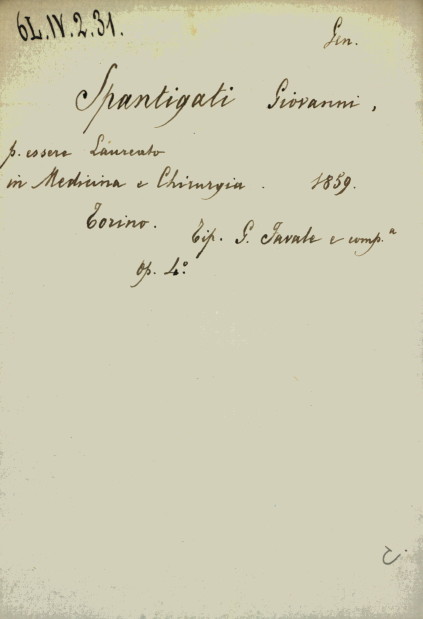 6L.IV.2.31.
Gen.
Spantigati Giovanni,
p. essere Laureato
in Medicina e Chirurgia. 1859.
Torino. Tip. G. Favale e comp.a
op. 4.o